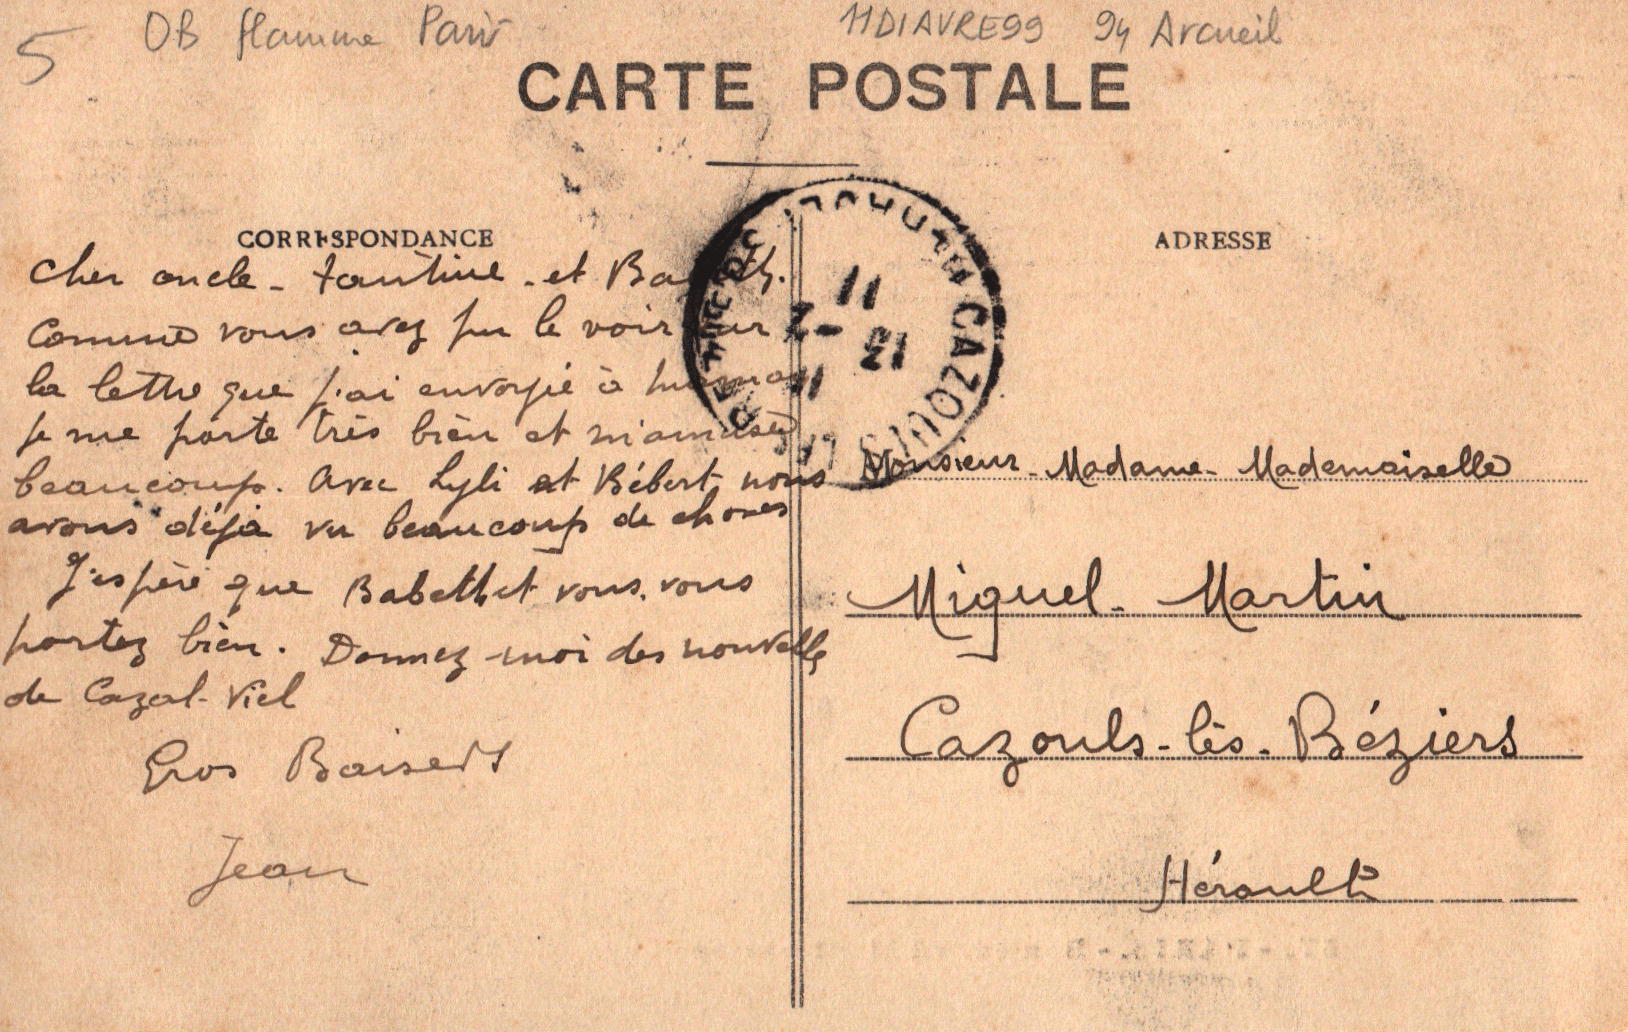 5 OB flamme Paris 11DIAVRE99 94 Arcueil
CARTE POSTALE
CORRESPONDANCE
ADRESSE
Cher oncle - tantine - et
Comme vous avez pu le voir sur
la lettre que j'ai envoyie à
je me porte très bien et m'amuse
beaucoup. Avec Lyli et Bébert nous
avons déjà vu beaucoup de choses
J'espère que Babeth et vous, vous
portez bien. Donnez-moi des nouvelles
de Cazal-Viel
Gros Baisers
Jean
CAZOULS
11
15 -2
11
Monsieur - Madame - Mademoiselle
Miguel - Martin
Cazouls-lès-Béziers
Hérault